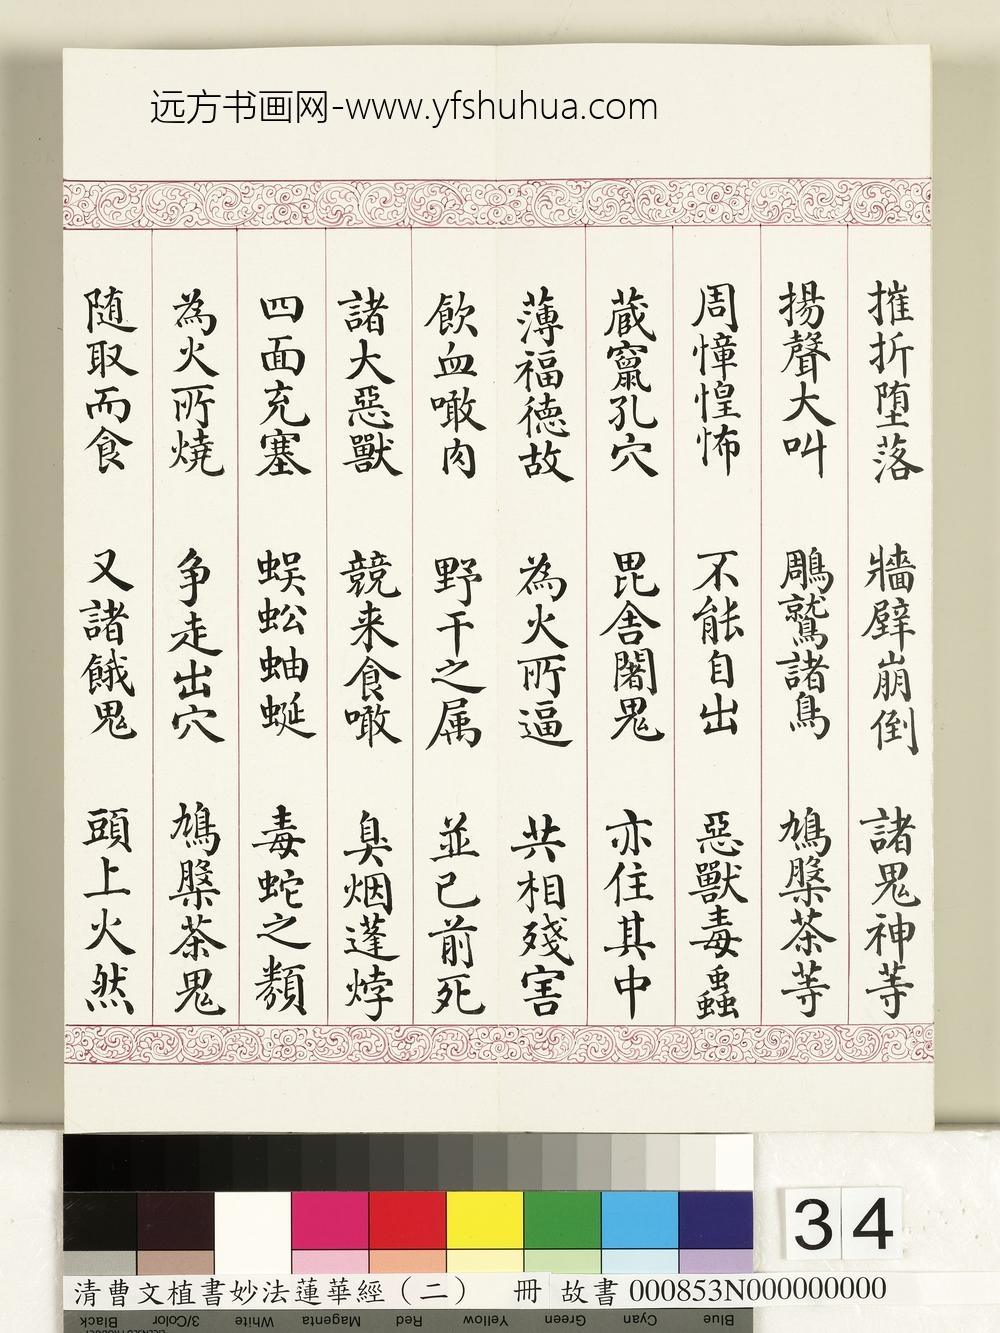 远方书画网-www.yfshuhua.com
摧折堕落 牆壁崩倒 諸鬼神等
揚聲大叫 鵰鷲諸鳥 鳩槃茶等
周慞惶怖 不能自出 惡獸毒蟲
蔵竄孔穴 毘舍闍鬼 亦住其中
薄福徳故 為火所逼 共相殘害
飲血噉肉 野干之属 並已前死
諸大惡獸 競来食噉 臭烟蓬㶿
四面充塞 蜈蚣蚰蜒 毒蛇之類
為火所燒 争走出穴 鳩槃茶鬼
随取而食 又諸餓鬼 頭上火然
34
清曹文植書妙法蓮華經（二） 冊 故書 000853N000000000
Black 3/Color White Magenta Red Yellow Green Cyan Blue